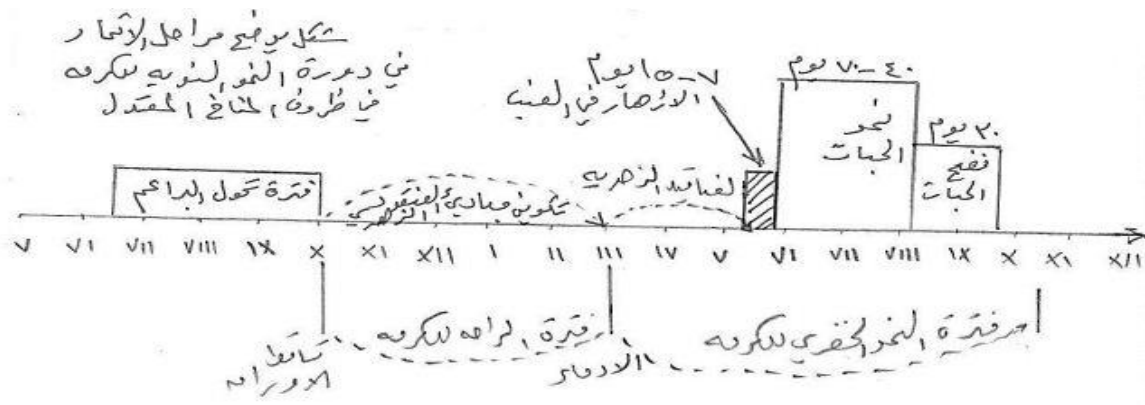 شكل يوضح مراحل الاثمار
في دورة النمو السنوية للكرمه
في ظروف المناخ المعتدل
٧-١٥ يوم
الازهار في العنب
٤٠-٧٠ يوم
نمو
الحبات
٣٠ يوم
نضج
الحبات
فترة تحول البراعم
تكوين مبادئ العنقود
الزهري
العناقيد الزهرية
V VI VII VIII IX X XI XII I II III IV V VI VII VIII IX X XI XII
تساقط
الاوراق
فترة الراحه للكرمه
الادماء
فترة النمو الخضري للكرمه